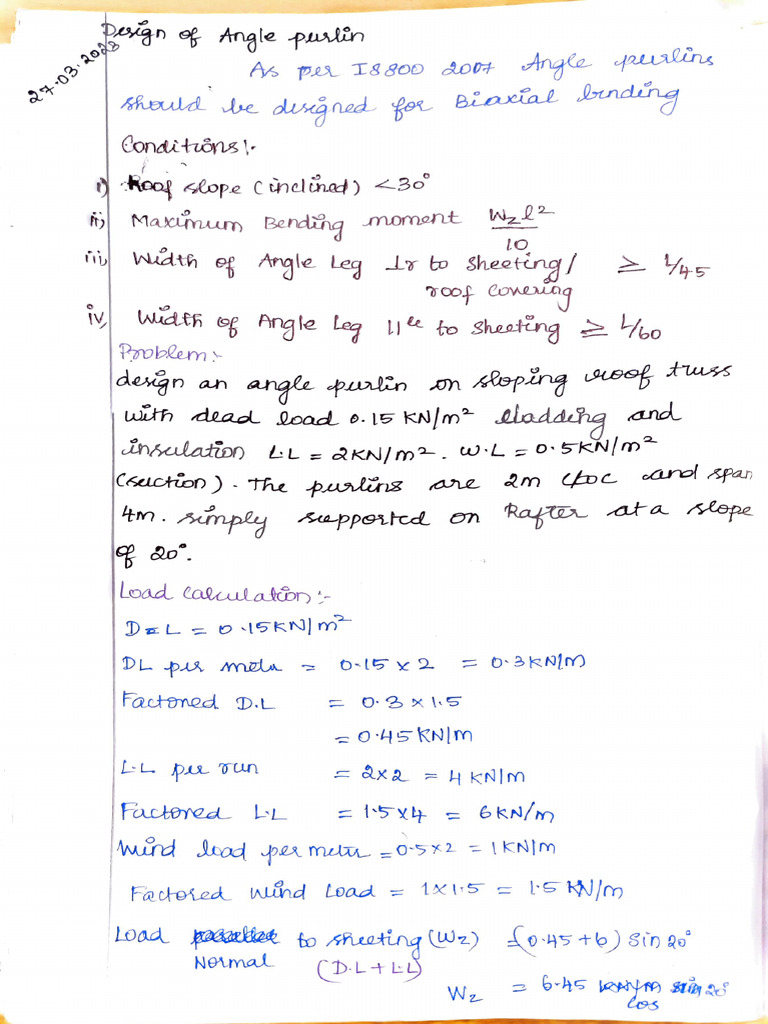 Design of Angle purlin
27-03-2023
As per IS800 2007 Angle purlins
should be designed for Biaxial bending
Conditions:-
i) Roof slope (inclined) < 30°
ii) Maximum Bending moment Wzl²/10
iii, Width of Angle Leg ⊥r to sheeting/ ≥ L/45
roof covering
iv, Width of Angle Leg 11le to sheeting ≥ L/60
Problem:-
design an angle purlin on sloping roof truss
with dead load 0.15 KN/m² cladding and
insulation L.L = 2KN/m². W.L = 0.5KN/m²
(suction). The purlins are 2m c/oc and span
4m. simply supported on Rafter at a slope
of 20°.
Load calculation:-
D.L = 0.15KN/m²
DL per meter = 0.15 x 2 = 0.3KN/m
Factored D.L = 0.3 x 1.5
= 0.45KN/m
L.L per run = 2x2 = 4KN/m
Factored L.L = 1.5x4 = 6KN/m
Wind load per meter = 0.5x2 = 1KN/m
Factored Wind Load = 1x1.5 = 1.5KN/m
Load to sheeting (Wz) = (0.45+6) sin20°
Normal (D.L+L.L)
Wz = 6.45 cos 20